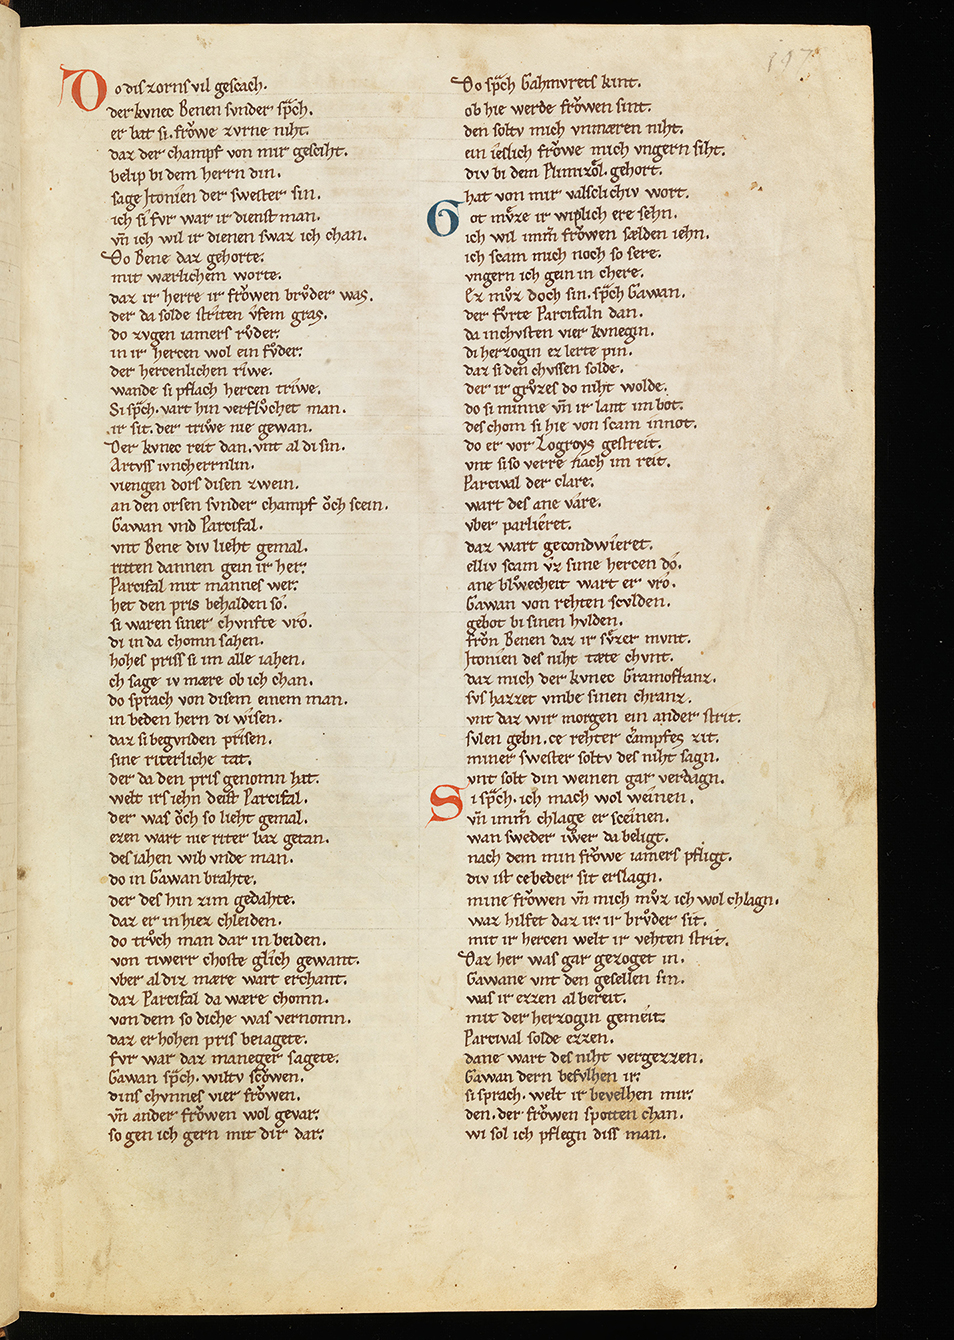 197
Do dis zorns vil gescach.
der kvnec Benen svnder sp̄ch.
er bat si. frŏwe zvrne niht.
daz der champf von mir gesciht.
belip bi dem herrn din.
sage Jtonien der swester sin.
ich si fvr war ir dienst man.
vn̄ ich wil ir dienen swaz ich chan.
Do Bene daz gehorte.
mit wærlichem worte.
daz ir herre ir frŏwen brv̊der was.
der da solde striten vfem gras.
do zvgen iamers rv̊der.
in ir hercen wol ein fv̊der.
der hercenlichen riwe.
wande si pflach hercen triwe.
Si sp̄ch. vart hin verflv̊chet man.
ir sit. der triwe nie gewan.
Der kvnec reit dan. vnt al di sin.
Artvss ivncherrnlin.
viengen dors disen zwein.
an den orsen svnder champf ŏch scein.
Gawan vnd Parcifal.
vnt Bene div lieht gemal.
ritten dannen gein ir her.
Parcifal mit mannes wer.
het den pris behalden so.
si waren siner chvnfte vro.
di in da chomn sahen.
hohes priss si im alle iahen.
ch sage iv mære ob ich chan.
do sprach von disem einem man.
in beden hern di wisen.
daz si begvnden prisen.
sine riterliche tat.
der da den pris genomn hat.
welt irs iehn deist Parcifal.
der was ŏch so lieht gemal.
ezen wart nie riter baz getan.
des iahen wib vnde man.
do in Gawan brahte.
der des hin zim gedahte.
daz er in hiez chleiden.
do trv̊ch man dar in beiden.
von tiwerr choste glich gewant.
vber al diz mære wart erchant.
daz Parcifal da wære chomn.
von dem so diche was vernomn.
daz er hohen pris beiagete.
fvr war daz maneger sagete.
Gawan sp̄ch. wiltv scŏwen.
dins chvnnes vier frŏwen.
vn̄ ander frŏwen wol gevar.
so gen ich gern mit dir dar.
Do sp̄ch Gahmvrets kint.
ob hie werde frŏwen sint.
den soltv mich vnmæren niht.
ein ieslich frŏwe mich vngern siht.
div bi dem Plimizŏl. gehort.
hat von mir valsclichiv wort.
Got mv̊ze ir wiplich ere sehn.
ich wil imm̄ frŏwen sælden iehn.
ich scam mich noch so sere.
vngern ich gein in chere.
Ez mv̊z doch sin. sp̄ch Gawan.
der fv̊rte Parcifaln dan.
da in chvsten vier kvnegin.
di herzogin ez lerte pin.
daz si den chvssen solde.
der ir grv̊zes do niht wolde.
do si minne vn̄ ir lant im bot.
des chom si hie von scam in not.
do er vor Logroys gestreit.
vnt si so verre nach im reit.
Parcival der clare.
wart des ane vare.
vber parlieret.
daz wart gecondwieret.
elliv scam vz sime hercen do.
ane blv̊wecheit wart er vro.
Gawan von rehten scvlden.
gebot bi sinen hvlden.
frŏn Benen daz ir sv̊zer mvnt.
Jtonien des niht tæte chvnt.
daz mich der kvnec Gramoflanz.
svs hazzet vmbe sinen chranz.
vnt daz wir morgen ein ander strit.
svlen gebn. ce rehter champfes zit.
miner swester soltv des niht sagn.
vnt solt din weinen gar verdagn.
Si sp̄ch. ich mach wol weinen.
vn̄ imm̄ chlage er sceinen.
wan sweder iwer da beligt.
nach dem min frŏwe iamers pfligt.
div ist ce beder sit erslagn.
mine frŏwen vn̄ mich mv̊z ich wol chlagn.
waz hilfet daz ir. ir brv̊der sit.
mit ir hercen welt ir vehten strit.
Daz her was gar gezoget in.
Gawane vnt den gesellen sin.
was ir ezzen al bereit.
mit der herzogin gemeit.
Parcival solde ezzen.
dane wart des niht vergezzen.
Gawan dern befvlhen ir.
si sprach. welt ir bevelhen mir.
den. der frŏwen spotten chan.
wi sol ich pflegn diss man.